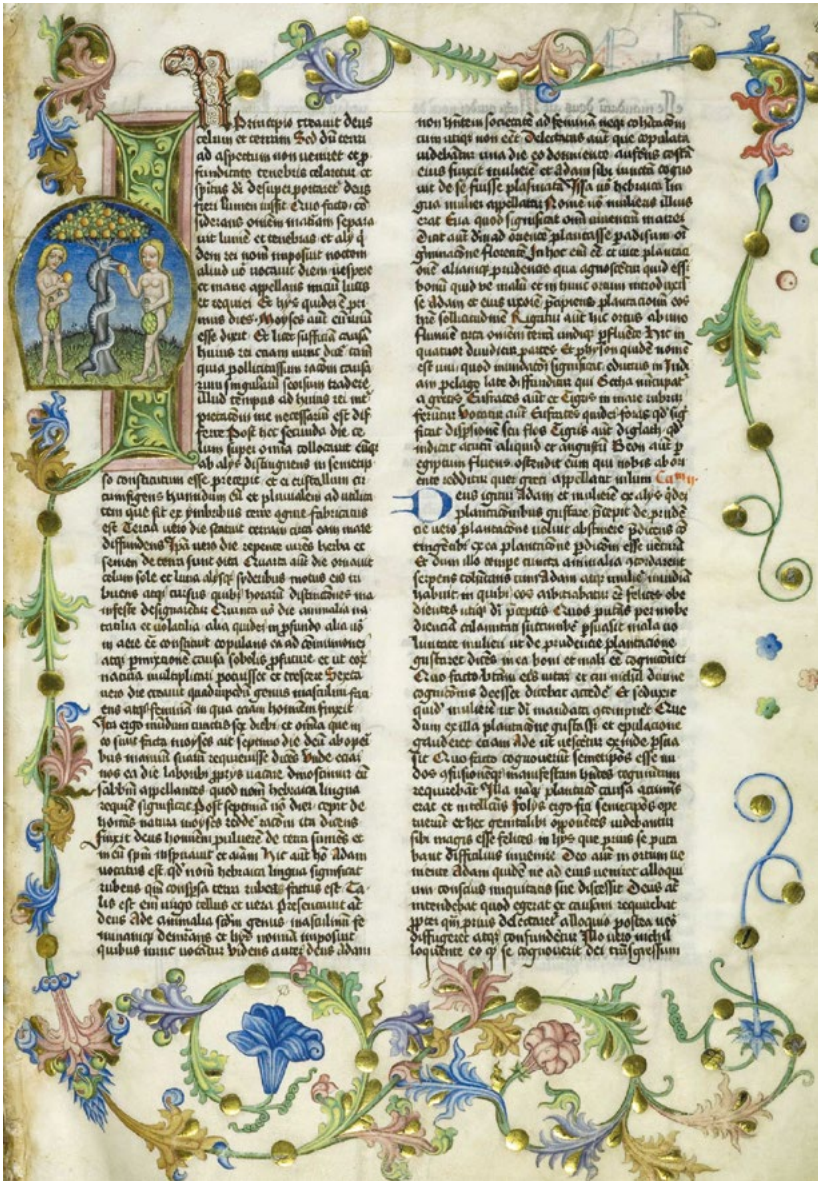 In Principio creauit deus
celum et terram Sed dū terra
ad aspectum non ueniret et ꝓ
funditate tenebris celaretur et
spūs dī desuper portaret᷑ deus
fieri lumen iussit Quo facto cō
siderans omēm mat̄iam separa
uit lumē et tenebras et alij q̇
dem rei nom̄ imposuit noctem
aliud uō uocauit diem uespere
et mane appellans iniciū lucis
et requiei Et hijs quidē ē pri
mus dies Moyses aut̄ eū unū
esse dixit Et licet sufficiā causā
huius rei eciam nunc dicē tam̄
quia pollicitussum racōm causa
rum singularū seorsum tradere
illud tempus ad huius rei int̄
pretacōm me necessariū est dif
ferre Post hec secunda die ce
lum super omīa collocauit eūqꝫ
ab alijs distinguens in semetip
so constitutum esse precepit et ei cristallum cir
cumfigens humidum eū et pluuialem ad utilita
tem que fit ex ymbribus terre ꝯgrue fabricatus
est Tercia uero die statuit terram circa eam mare
diffundens Ip̄a uero die repente uirēs herba et
semen de terra sunt orta Quarta aūt die ornauit
celum sole et luna alijsqꝫ syderibus motus eis tri
buens atqꝫ cursus quibꝫ horarū distinctōnes ma
nifeste designarent᷑ Quinta uō die animalia na
tatilia et volatilia alia quidē in ꝓfundo alia uō
in aere ē constituit copulans ea ad cōmunionē
atqꝫ pmixtione causa sobolis ꝓfuture et ut eoꝝ
natura multiplicari potuisset et crescere Sexta
uero die creauit quadrupedū genus masculinū faci
ens atqꝫ femininū in qua eciam hominem finxit
Ita ergo mūdum cunctis sex diebꝫ et omīa que in
eo sunt facta moyses ait septimo die deū ab operi
bus manuū suaꝝ requieuisse dicēs Unde eciā
nos ea die laboribꝫ ꝓprijs uacare dinoscimur eū
sabbm̄ appellantes quod nom̄ hebraica lingua
requiē significat Post septimā uō diē cepit de
hoīnis natura moyses reddē racōm ita dicens
finxit deus hominem puluerē de terra sumēs et
in eū spm̄ inspirauit et aīam Hic aut̄ hō Adam
uocatus est qd̄ nom̄ hebraica lingua significat
rubens qm̄ conspsa terra rubea factus est Ta
lis est em̄ uirgo tellus et uera Presentauit aūt
deus Ade animalia scdm̄ genus masculinū fe
mininūqꝫ demrans et hijs nomīa imposuit
quibus nunc uocātur Videns autem deus adam
non hn̄tem societatē ad feminam neqꝫ cohitacōm
cum utiqꝫ non eēt delectatus aut̄ que copulata
uidebāntur una die eo dormiente auferēs costā
eius finxit mulierē et Adam sibi iunctā cogno
uit de se fuisse plasmatā Issa uō hebraica lin
gua mulier appellat᷑ Nomē uō mulieris illius
erat Eua quod significat om̄ uiuentiū matrē
Dicit aut̄ dm̄ ad oriente plantasse padisum oī
germinacōne florente In hoc em̄ eē et uite plantaci
onē aliamqꝫ prudencie qua agnosceret᷑ quid esset
bonū quid ue malū et in hunc ortum introduxis
se Adam et eius uxorē pcipiens plantacionū eos
hr̄e sollicitudinē Rigatur aut̄ hic ortus ab uno
flumīe circa omēm terrā undiqꝫ ꝓfluēte Hic in
quatuor diuidit᷑ partes Et physon quidē nomē
est uni quod inundacōm significat eductus in Indi
am pelago late diffunditur qui Getha nūcupat᷑
a grecis Eufrates aut̄ et Tigris in mare rubrū
ferūtur Vocatur aut̄ Eufrates quidē foras qd̄ sig
ficat disp̄sionē seu flos Tigris aut̄ diglath qd̄
indicat acutū aliquid et angustū Geon aut̄ p
egiptum fluens ostendit eum qui nobis ab ori
ente redditur quē greci appellant nilum Cam ij
Deus igitur Adam et mulierē ex alijs q̇dē
plantacōnibus gustare pcepit de prudē
cie uero plantacōne uoluit abstinere pdicens cō
tingētibꝫ ex ea plantacōne pdicōm esse uēturā
Et dum illo tempe cuncta animalia ꝯcordarent
serpens colhitans cum Adam atqꝫ muliē inuidiā
habuit in quibꝫ eos arbitrabat᷑ eē felices obe
dientes utiqꝫ dī pceptis Quos putās per inobe
dienciā calamitati succūbē psuasit mala uo
luntate mulieri ut de prudēcie plantacione
gustaret dicēs in ea boni et mali eē cognicionē
Quo facto btām eis uitā et cui nichil diuine
cognicōnis deesset dicebat accedē Et seduxit
quidē mulierē ut dī mandata ꝯtempnēt Que
dum ex illa plantacōne gustasset et epulacione
gauderet eciam Ade ut uesceret᷑ exinde psua
sit Quo facto cognouerūt semetipos esse nu
dos ꝯfusionēqꝫ manifestam hn̄tes tegumentum
requirebāt Illa naqꝫ plantacō causa acumīs
erat et intellcūs Folijs ergo ficꝰ semetipos ope
ruerūt et hec genitalibꝫ opponētes uidebantur
sibi magis esse felices in hijs que prius se puta
bant difficilius inuenire Deo aut̄ in ortum ue
niente Adam quidē ne ad eius ueniret alloqui
um conscius iniquitatis sue discessit Deus aūt
intendebat quod egerat et causam requirebat
ꝓpter qm̄ prius delectaret᷑ alloquio postea uero
diffugeret atqꝫ confunderet᷑ Illo uero nichil
loquente eo qꝫ se cognouerit dei trāsgressum